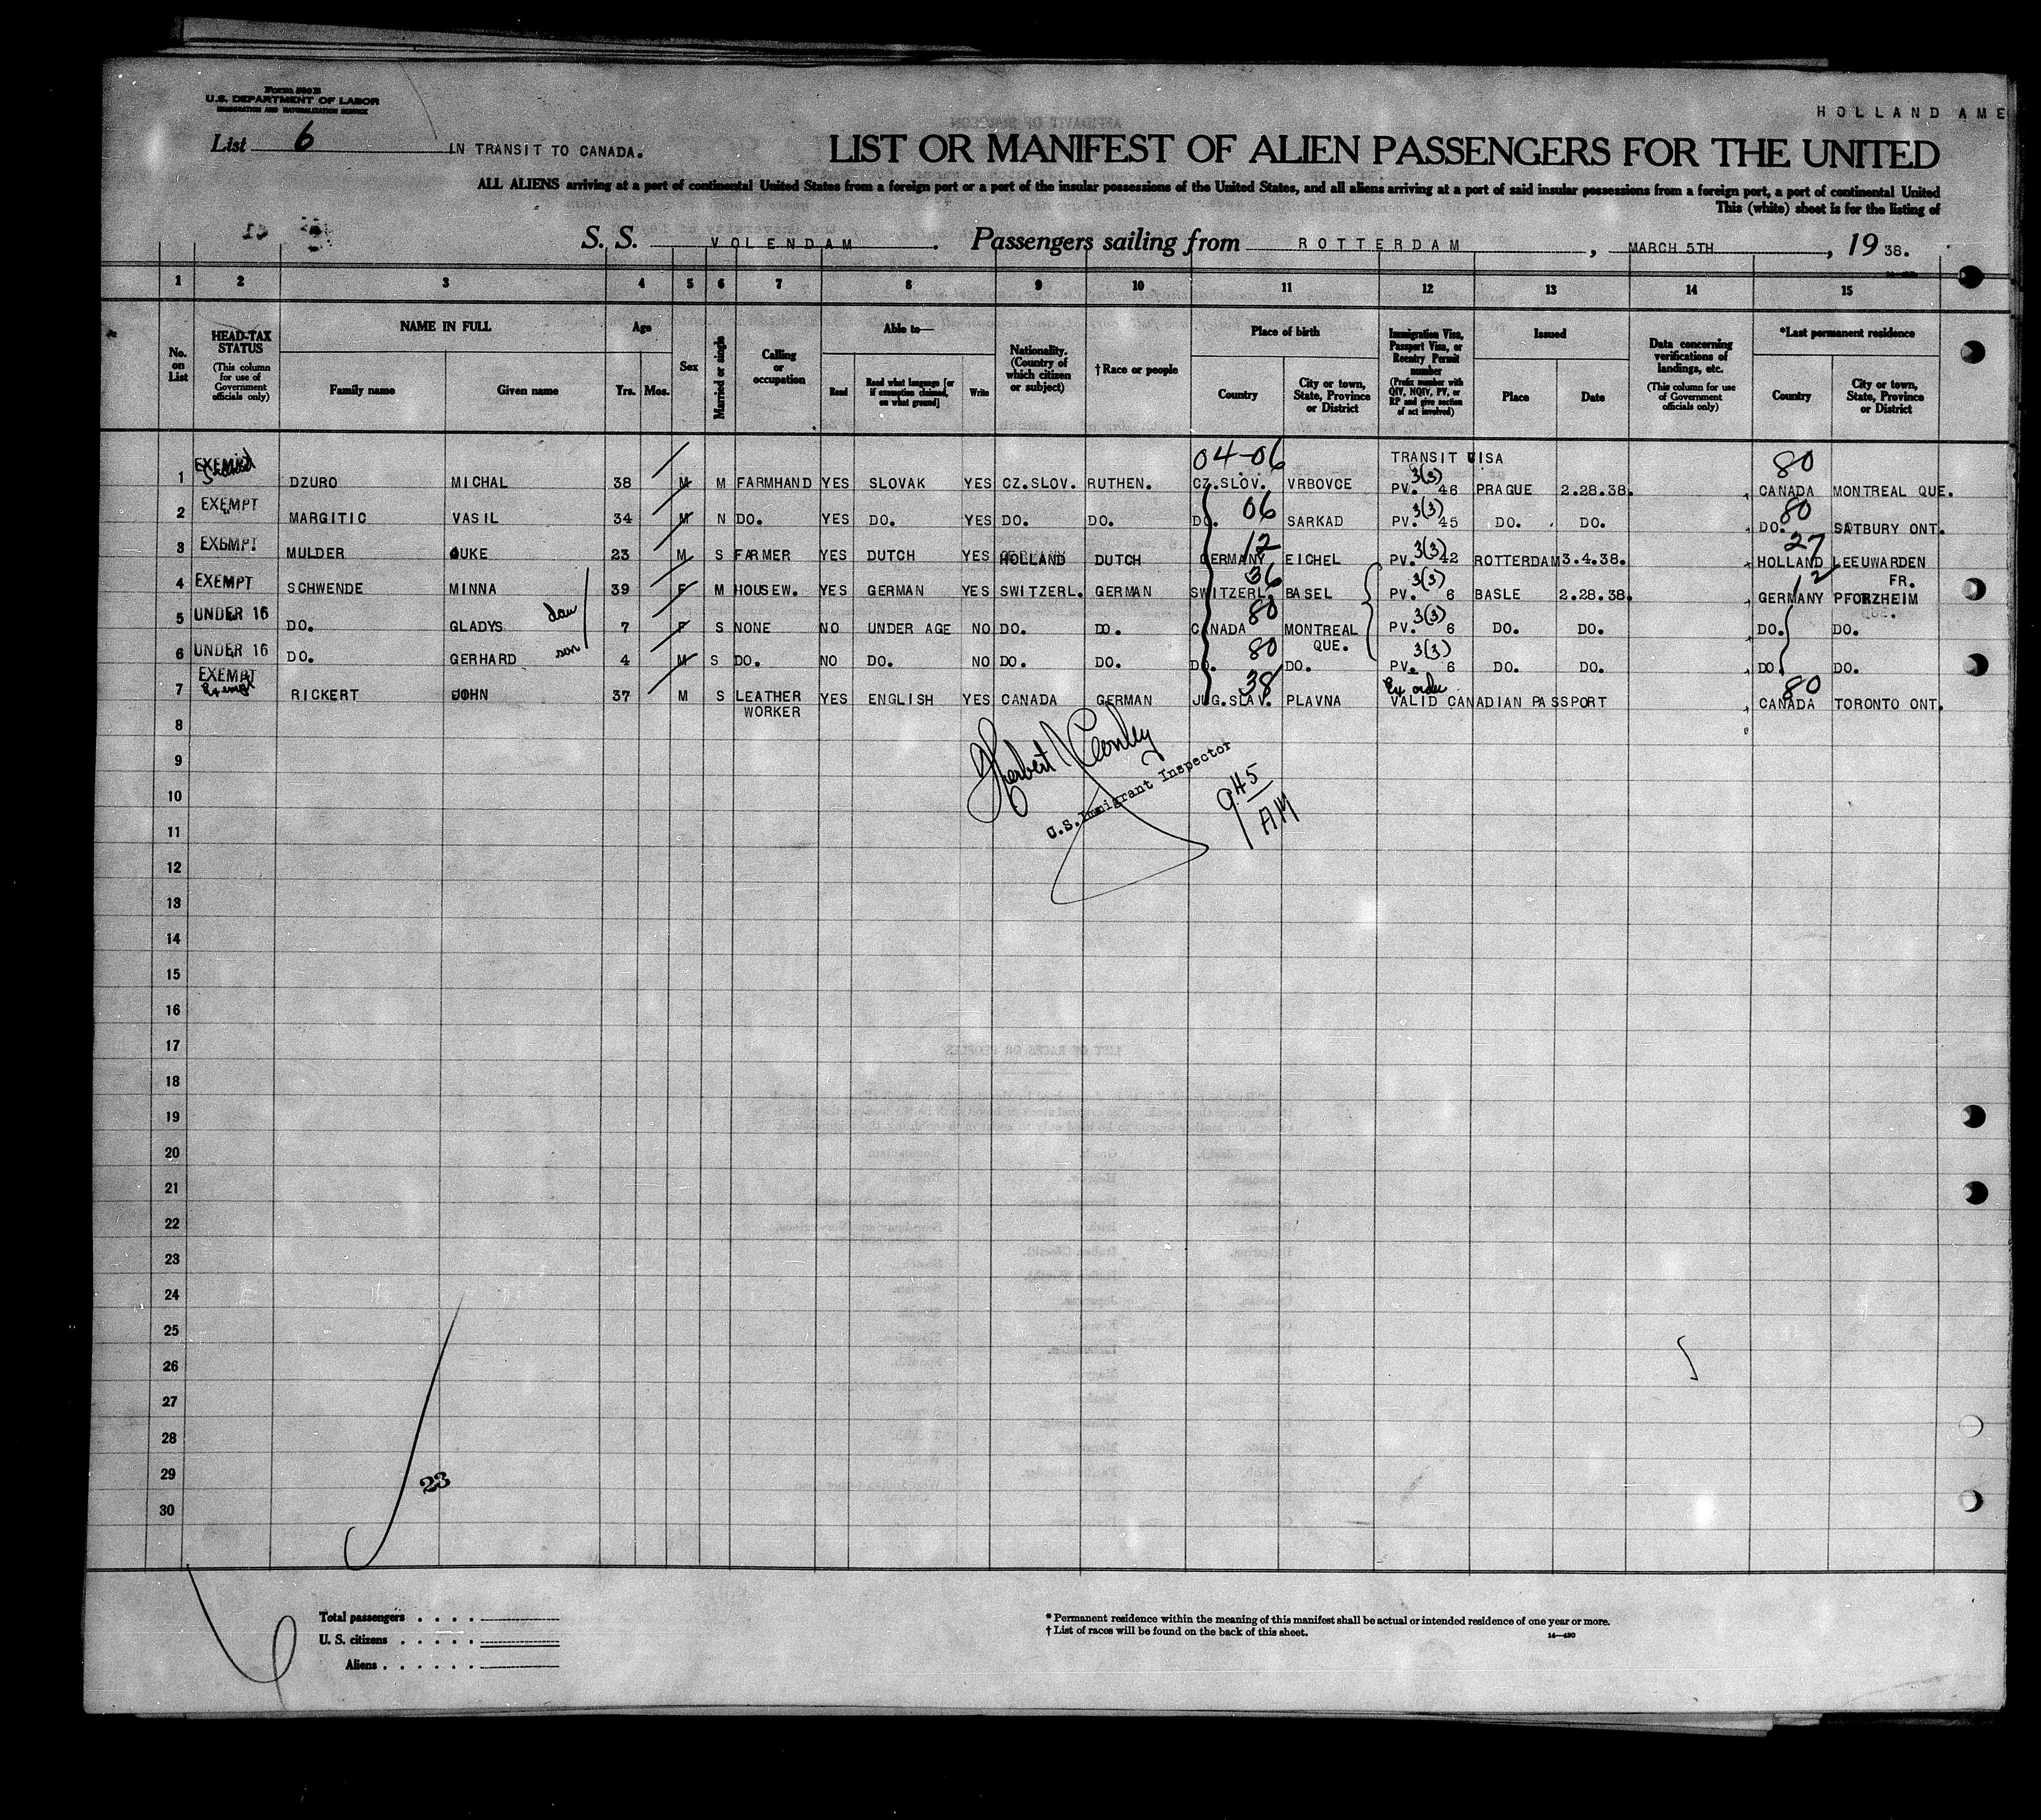 Form 500 B
U.S. DEPARTMENT OF LABOR
IMMIGRATION AND NATURALIZATION SERVICE
HOLLAND AME
List 6 IN TRANSIT TO CANADA.
LIST OR MANIFEST OF ALIEN PASSENGERS FOR THE UNITED
ALL ALIENS arriving at a port of continental United States from a foreign port or a port of the insular possessions of the United States, and all aliens arriving at a port of said insular possessions from a foreign port, a port of continental United
This (white) sheet is for the listing of
S. S. VOLENDAM. Passengers sailing from ROTTERDAM, MARCH 5TH, 19 38.
1 2 3 4 5 6 7 8 9 10 11 12 13 14 15
No. on List
HEAD-TAX STATUS (This column for use of Government officials only)
NAME IN FULL Family name Given name
Age Yrs. Mos.
Sex
Married or single
Calling or occupation
Able to— Read Read what language [or if exemption claimed, on what ground] Write
Nationality. (Country of which citizen or subject)
†Race or people
Place of birth Country City or town, State, Province or District
Immigration Visa, Passport Visa, or Reentry Permit number (Prefix number with QIV, NQIV, PV, or RP and give section of act involved)
Issued Place Date
Data concerning verifications of landings, etc. (This column for use of Government officials only)
*Last permanent residence Country City or town, State, Province or District
04-06 TRANSIT VISA 80
1 EXEMPT DZURO MICHAL 38 M M FARMHAND YES SLOVAK YES CZ.SLOV. RUTHEN. CZ.SLOV. VRBOVCE 3(3) PV. 46 PRAGUE 2.28.38. CANADA MONTREAL QUE.
2 EXEMPT MARGITIC VASIL 34 M N DO. YES DO. YES DO. DO. DO. 06 SARKAD 3(3) PV. 45 DO. DO. 80 DO. SATBURY ONT.
3 EXEMPT MULDER OUKE 23 M S FARMER YES DUTCH YES HOLLAND DUTCH 12 GERMANY EICHEL 3(3) PV. 42 ROTTERDAM 3.4.38. 27 HOLLAND LEEUWARDEN FR.
4 EXEMPT SCHWENDE MINNA 39 F M HOUSEW. YES GERMAN YES SWITZERL. GERMAN 36 SWITZERL. BASEL 3(3) PV. 6 BASLE 2.28.38. 12 GERMANY PFORZHEIM
5 UNDER 16 DO. GLADYS dau 7 F S NONE NO UNDER AGE NO DO. DO. 80 CANADA MONTREAL QUE. 3(3) PV. 6 DO. DO. DO. DO.
6 UNDER 16 DO. GERHARD son 4 M S DO. NO DO. NO DO. DO. 80 DO. DO. 3(3) PV. 6 DO. DO. DO. DO.
7 EXEMPT Exempt RICKERT JOHN 37 M S LEATHER WORKER YES ENGLISH YES CANADA GERMAN 38 JUG.SLAV. PLAVNA Ex order VALID CANADIAN PASSPORT 80 CANADA TORONTO ONT.
8
Herbert Conley
U.S. Immigrant Inspector
9 45 AM
9
10
11
12
13
14
15
16
17
18
19
20
21
22
23
24
25
26
27
28
29
23
30
Total passengers
U. S. citizens
Aliens
* Permanent residence within the meaning of this manifest shall be actual or intended residence of one year or more.
† List of races will be found on the back of this sheet.
14—430